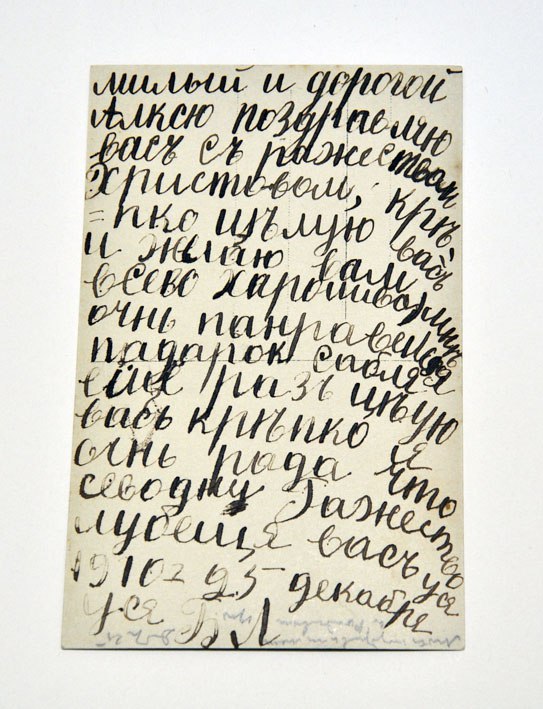 милый и дорогой
Алксю поздравлчю
васъ съ ражествам
Христовом, крѣ
=пко цѣлую васъ
и желаю вам
всево харошиво, мнѣ
очнь панравелся
падарок сабля
еще разъ цѣую
васъ крѣпко я
очнь рада что
севодну Ражество
лубещя васъ уся
1910г 25 декабре
Уся БЛ